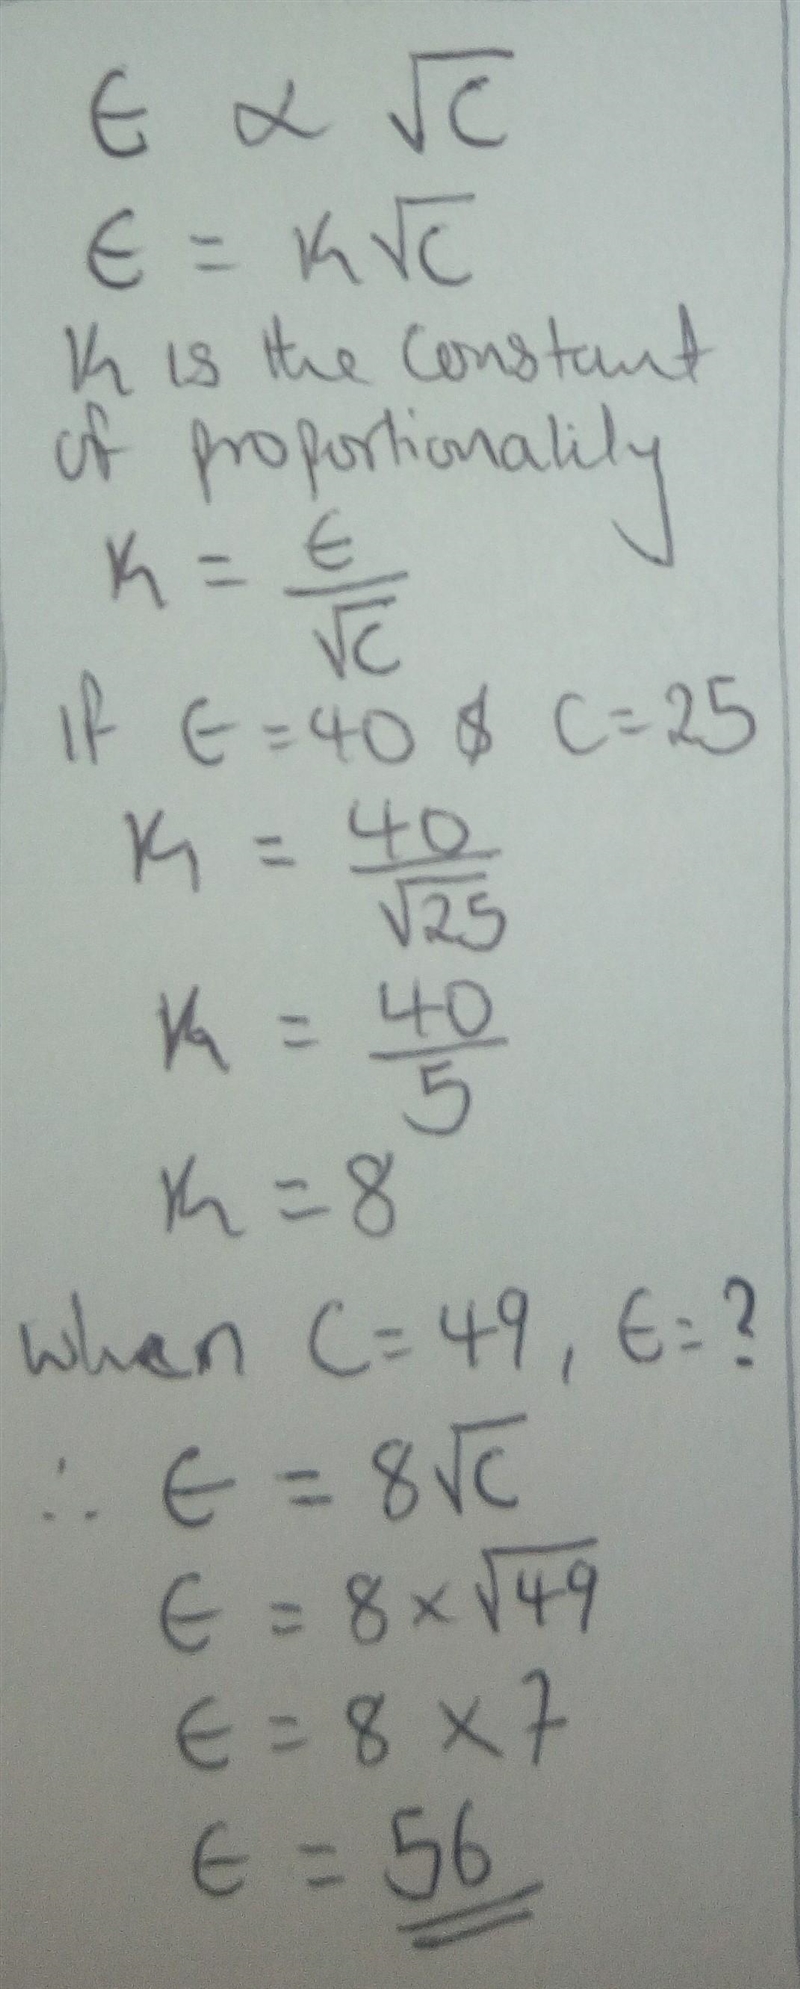 E ∝ √C
E = K√C
K is the constant
of proportionality
K = E/√C
If E = 40 & C = 25
K = 40/√25
K = 40/5
K = 8
when C = 49, E = ?
∴ E = 8√C
E = 8 × √49
E = 8 × 7
E = 56